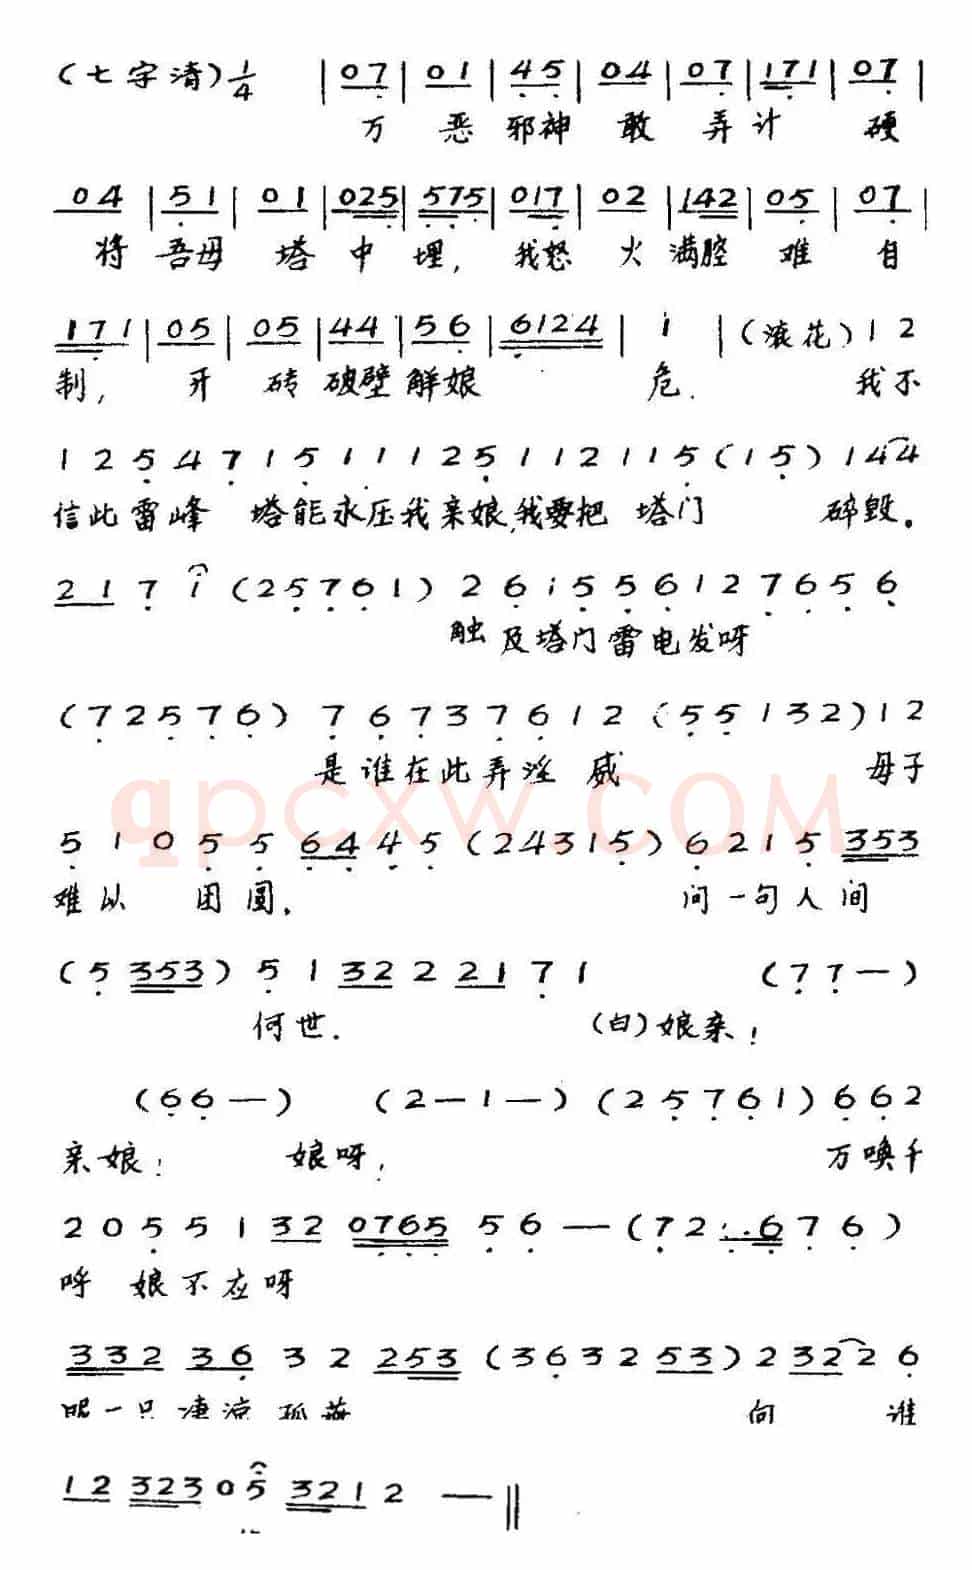 （七字清）1/4 | 07 | 01 | 45 | 04 | 07 | 171 | 07 |
万 恶 邪神 敢 弄计 硬
04 | 51 | 01 | 025 | 575 | 017 | 02 | 142 | 05 | 07 |
将 吾母 塔 中 埋，我怒 火 满腔 难 自
171 | 05 | 05 | 44 | 56 | 6124 | i | （滚花）1 2
制， 开 砖 破壁 解娘 危． 我不
1 2 5 4 7 1 5 1 1 1 2 5 1 1 2 1 1 5（1 5）1 4 4
信此雷峰 塔能永压我亲娘，我要把 塔门 碎毁．
2 1 7 i（2 5 7 6 1） 2 6 i 5 5 6 1 2 7 6 5 6
触及塔门雷电发呀
（7 2 5 7 6） 7 6 7 3 7 6 1 2（5 5 1 3 2）1 2
是谁在此弄淫 威 母子
qpcxw.COM
5 1 0 5 5 6 4 4 5（2 4 3 1 5）6 2 1 5 3 5 3
难以 团圆． 问一句人间
（5 3 5 3）5 1 3 2 2 2 2 1 7 1 （7 7 —）
何世． （白）娘亲！
（6 6 —） （2 — 1 —）（2 5 7 6 1）6 6 2
亲娘！ 娘呀， 万唤千
2 0 5 5 1 3 2 0 7 6 5 5 6 —（7 2 · · 6 7 6）
呼 娘不应呀
3 3 2 3 6 3 2 2 5 3（3 6 3 2 5 3）2 3 2 2 6
一只凄凉孤 向 谁
1 2 3 2 3 0 5 3 2 1 2 — ‖